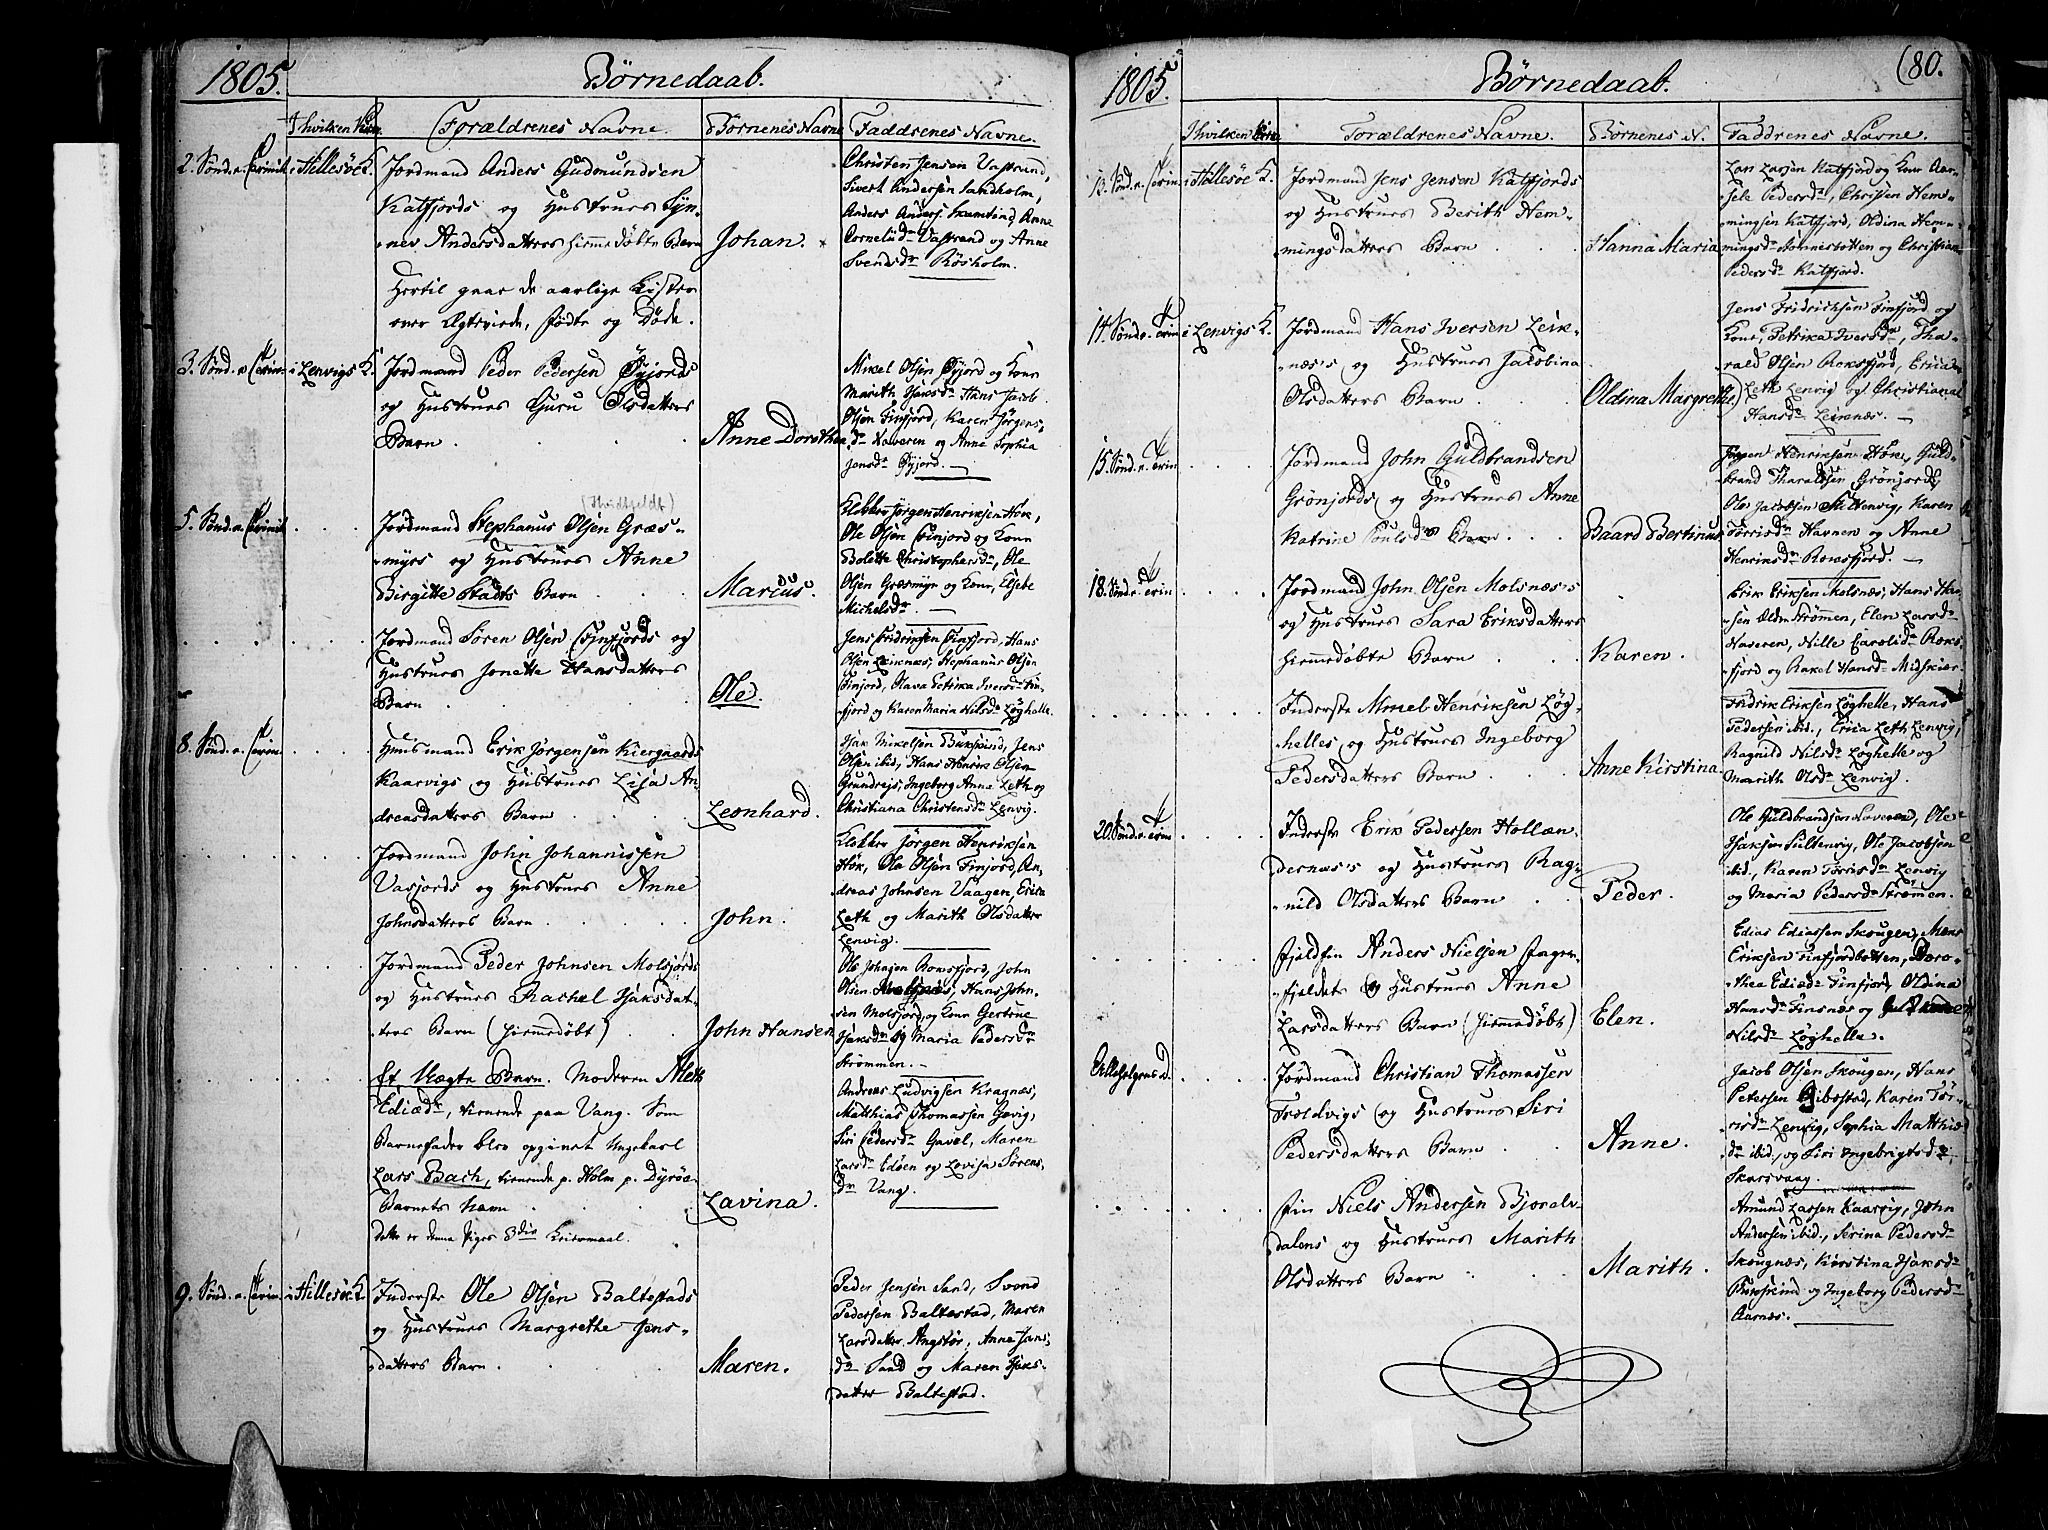 1805.
Børnedaab.
I hvilken Kirke
Forældrenes Navne.
Børnenes Navne
Faddrenes Navne.
2. Sønd. e. Trinit.
i Hillesøe K.
Jordmand Anders Gudmundsen
Katfjords og Hustrues Syn-
nev Andersdatters hiemmedøbte Barn
Johan.
Christen Jensen Vastrand,
Sivert Andersen Sandholm,
Anders Anders. Skamtind, Anne
Cornelid. Vastrand og Anne
Svendsdr. Røsholm.
Hertil gaar de aarlige Lister
over Ægteviede, fødte og Døde.
3. Sønd. e. Trin.
i Lenvigs K.
Jordmand Peder Pedersen Øyjords
og Hustrues Guru Olsdatters
Barn
Anne Dorothea
Mikel Olsen Øyjord og Kone
Marith Isaksdr. Hans Jacob
Olsen Finfjord, Karen Jørgens-
dr. Naveren og Anne Sophia
Jensdr. Øyjord.
5. Sønd. e. Trinit.
Jordmand Stephanus Olsen Græs-
myrs og Hustrues Anne
Birgitte Stadts Barn
Marcus.
Klokker Jørgen Henriksen Høk,
Ole Olsen Finjord og Kone
Bolette Christophersdr., Ole
Olsen Græsmyr og Kone, Elsebe
Michelsdr.
Jordmand Søren Olsen Finfjords og
Hustrues Jonette Hansdatters
Barn
Ole.
Jens Fridriksen Finfjord, Hans
Olsen Leiknæs, Stephanus Olsen
Finjord, Olava Petrika Iversdr. Fin-
fjord og Karen Maria Nilsdr. Løghelle.
8. Sønd. e. Trin.
Huusmand Erik Jørgensen Kiergaards
Kaarvigs og Hustrues Lisa An-
dreasdatters Barn
Leonhard.
Isak Mikelsen Buksnind, Jens
Olsen ibid, Hans Henrik Olsen
Grundreis, Ingeborg Anne Leth og
Christiana Christensdr. Lenvig.
Jordmand John Johannissen
Vasjords og Hustrues Anne
Johnsdatters Barn
John.
Klokker Jørgen Henriksen
Høk, Ole Olsen Finjord, An-
dreas Johnsen Vaagen, Erica
Leth og Marith Olsdatter
Lenvig.
Jordmand Peder Johnsen Molsjords
og Hustrues Rachel Isaksdat-
ters Barn (hiemmedøbt)
John Hansen
Ole Johnsen Roxfjord, John
Olsen, Hans John-
sen Molsjord, og Kone Gertrue
Isaksdr. og Maria Pedersdr.
Strømmen.
Et Uægte Barn. Moderen Aleth
Ediædr., tienende paa Vang. Som
Barnefader blev opgivet Ungkarl
Lars Bach, tienende p. Holm p. Dyrøe
Barnets Navn
Dette er denne Piges 3die Leiermaal.
Lavina.
Andreas Ludvigsen Kragnæs,
Matthias Thomassen Gevig,
Siri Pedersdr. Gavel, Maren
Larsdr. Edøen og Lovisa Sørens-
dr. Vang.
9. Sønd. e. Trin.
i Hillesøe K.
Inderste Ole Olsen Baltestads
og Hustrues Margrethe Jens-
datters Barn
Maren.
Peder Jensen Sand, Svend
Pedersen Baltestad, Maren
Larsdatter Angstør, Anne Jans-
dr. Sand og Maren Isaks-
datter Baltestad.
1805.
Børnedaab.
(80.
I hvilken Kirke
Forældrenes Navne.
Børnenes N.
Faddrenes Navne.
13. Sønd. e. Trin.
i Hillesøe K.
Jordmand Jens Jensen Katfjords
og Hustrues Berith Hem-
mingsdatters Barn
Hanna Maria
Lars Larsen Katfjord og Kone Aar-
sele Pedersdr., Christen Hem-
mingsen Katfjord, Oldina Hem-
mingsdr. Sønnesbotten og Christian
Pedersdr. Katfjord.
14. Sønd. e. Trin
i Lenvigs K.
Jordmand Hans Iversen Leik-
næs's og Hustrues Jacobina
Olsdatters Barn
Oldina Margrethe
Jens Fridricksen Finfjord og
Kone, Petrika Iversdr., Tha-
rald Olsen Roxfjord, Erica
Leth Lenvig og Christiana
Hansdr. Leirnæs.
15. Sønd. e. Trin
Jordmand John Guldbrandsen
Grønjords og Hustrues Anne
Katrine Poulsdrs Barn
Baard Bertinus
Jørgen Henriksen Høk, Guld-
brand Tharaldsen Grønjord,
Ole Jacobsen Sultenvig, Karen
Torrisdr. Havnen og Anne
Henriksdr. Roxfjord.
18. Sønd. e. Trin
Jordmand John Olsen Molsnæs's
og Hustrues Sara Eriksdatters
hiemmedøbte Barn
Karen.
Erik Eriksen Molsnæs, Hans Han-
sen Ældre Strømmen, Elen Larsdr.
Naveren, Nille Carolidr. Roxs-
fjord og Rakel Hansdr. Midskiær.
Inderste Mikel Henriksen Løg-
helles og Hustrues Ingeborg
Pedersdatters Barn
Anne Kirstina
Fridrik Eriksen Løghelle, Hans
Pedersen ibid., Erica Leth Lenvig,
Ragnild Nilsdr. Løghelle og
Marith Olsdr. Lenvig.
20. Sønd. e. Trin
Inderste Erik Pedersen Hollæn-
dernæs's og Hustrues Rag-
nild Olsdatters Barn
Peder.
Ole Guldbrandsen Naveren, Ole
Isaksen Sultenvig, Ole Jacobsen
ibid., Karen Torrisdr. Lenvig
og Maria Pedersdr. Strømmen.
Fjeldfin Anders Nielsen Fager-
fjeldets og Hustrues Anne
Larsdatters Barn (hiemmedøbt)
Elen.
Edias Ediassen Skougen, Mons
Eriksen Finfjordbotten, Doro-
thea Ediædr. Finfjord, Oldina
Hansdr. Finsnæs og
Nilsdr. Løghelle.
Allehelgens D.
Jordmand Christian Thomassen
Troldvigs og Hustrues Siri
Pedersdatters Barn
Anne.
Jacob Olsen Skougen, Hans
Petersen Gibostad, Karen Tør-
risdr. Lenvig, Sophia Matthiæ
dr. ibid., og Siri Ingebrigtsdr.
Skarsvaag.
Fin Niels Andersen Bjorelv-
dalens og Hustrues Marith
Olsdatters Barn
Marith.
Amund Larsen Kaarvig, John
Andersen ibid., Serina Pedersdr.
Skougnæs, Kirstina Isaksdr.
og Ingeborg Pedersdr.
Aarnæs.